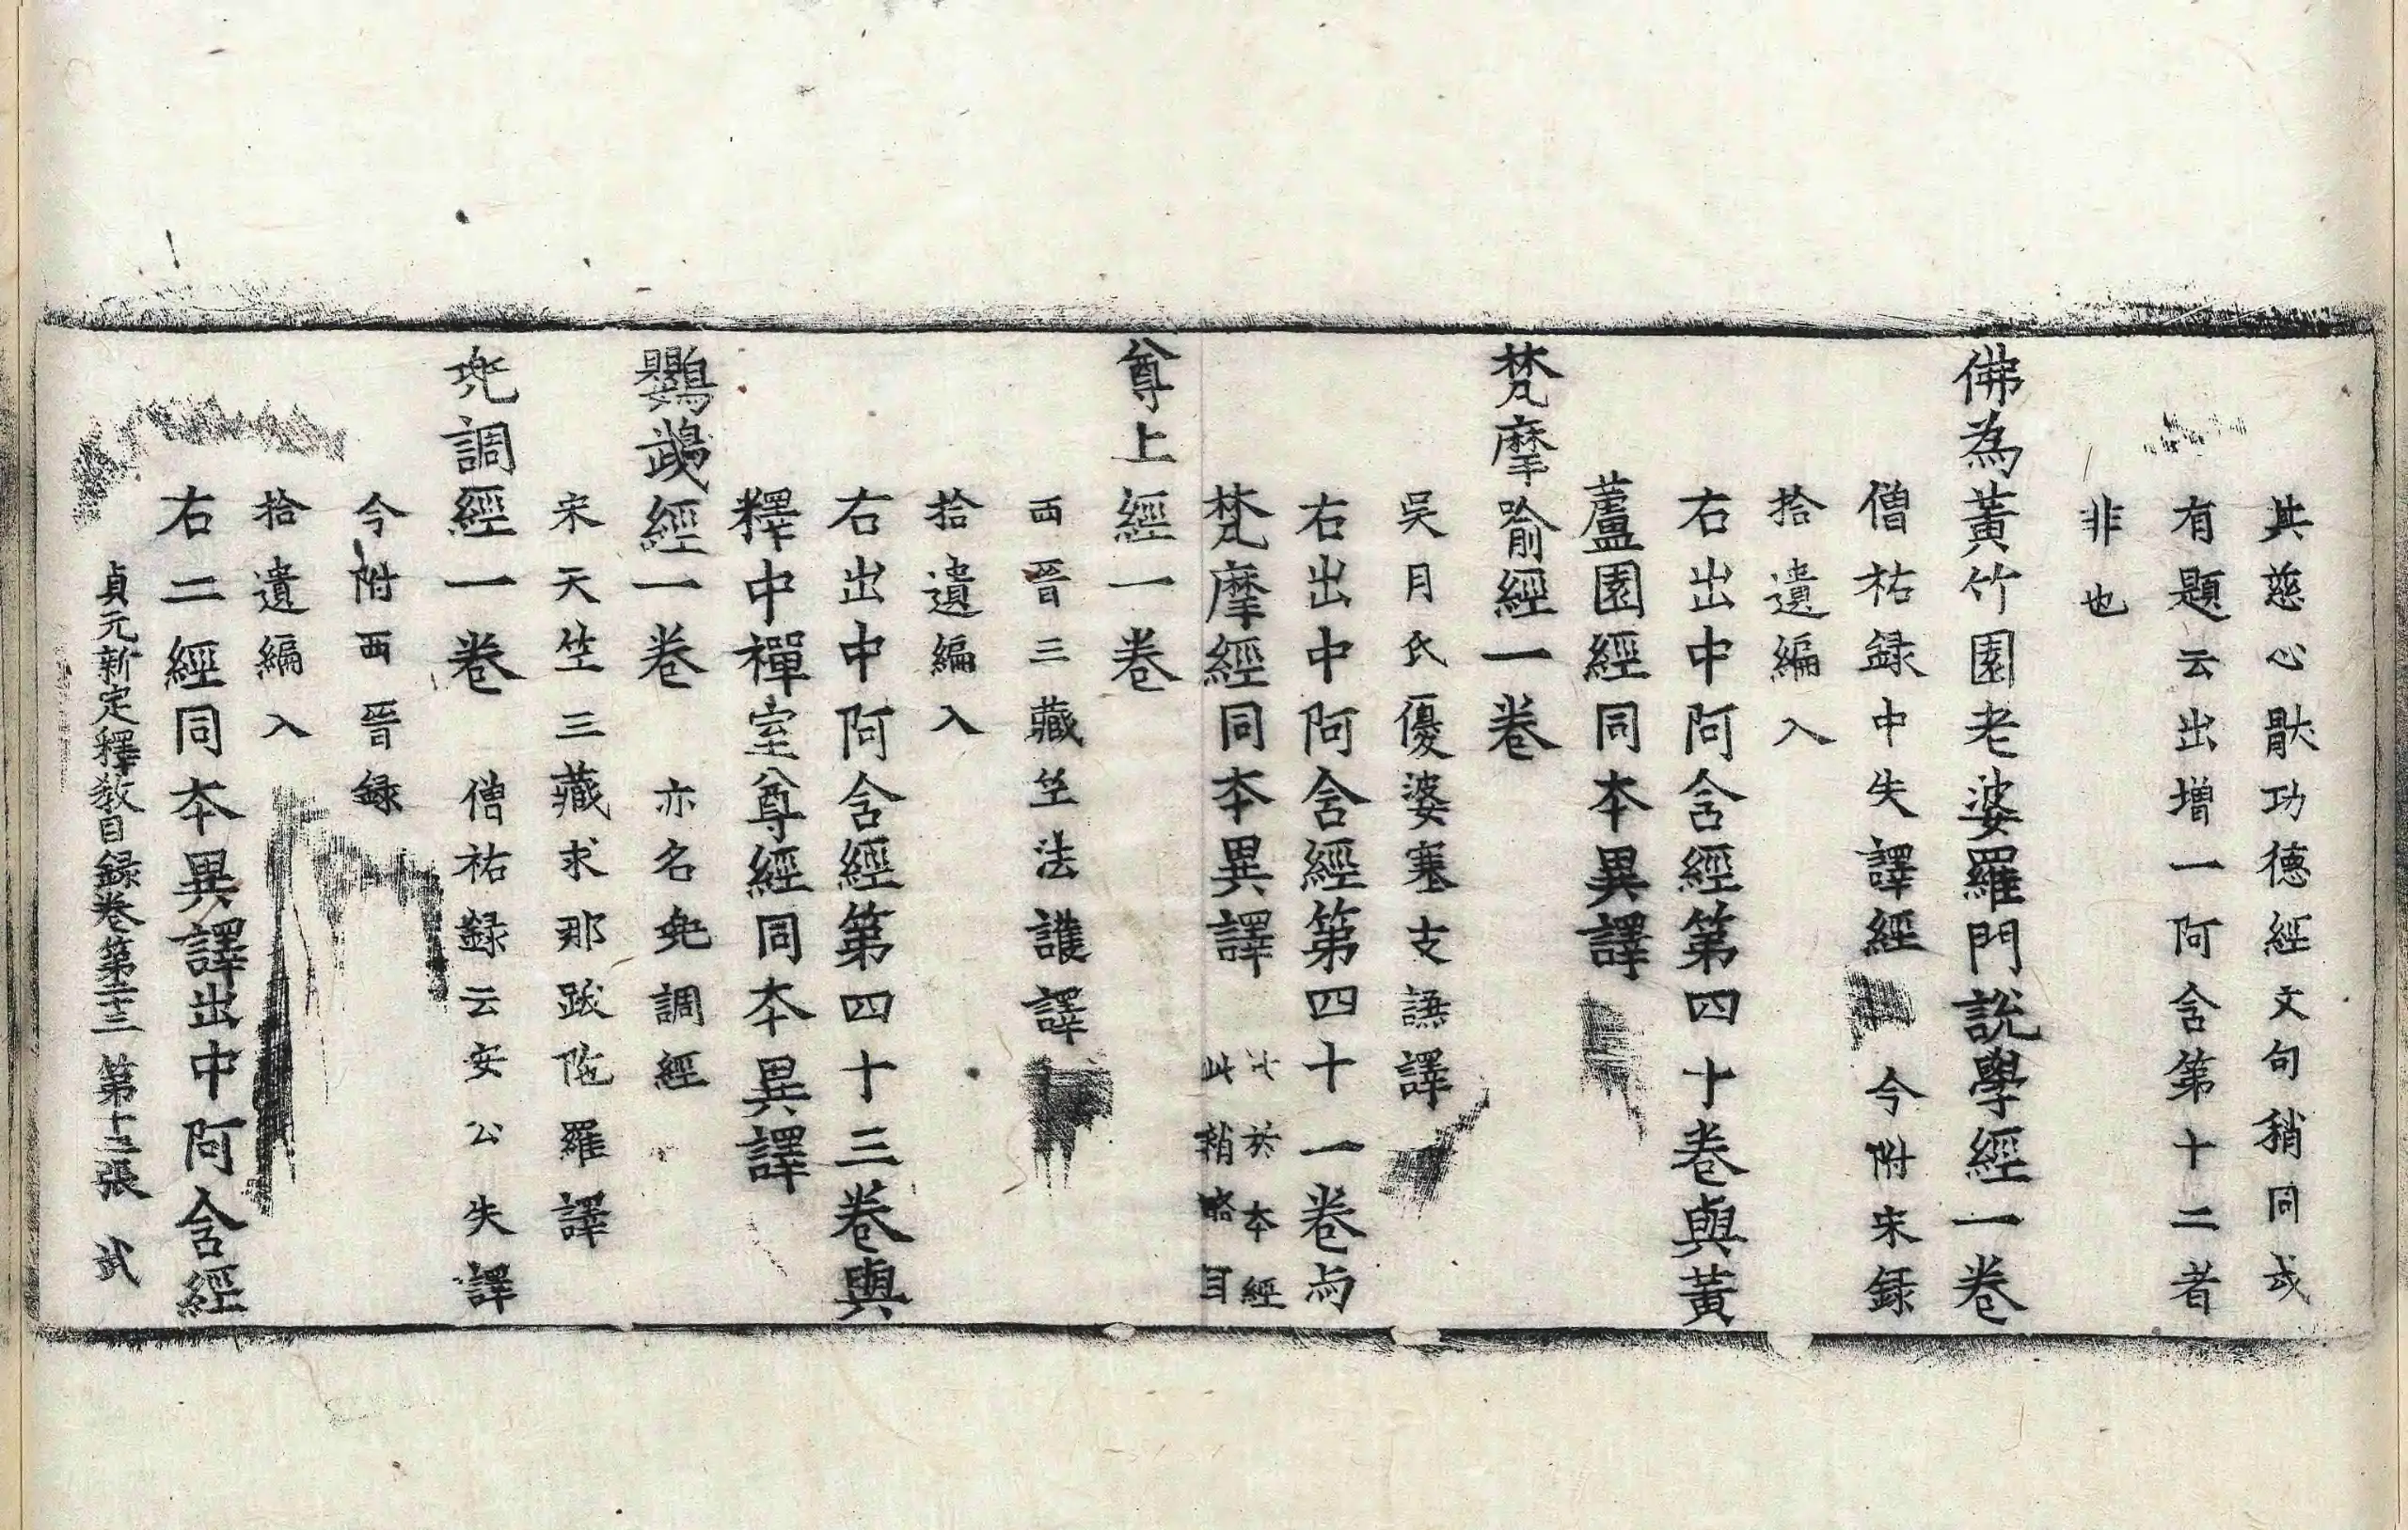 其慈心猒功德經文句稍同或
有題云出增一阿含第十二者
非也
佛為黃竹園老婆羅門說學經一卷
僧祐録中失譯經　今附宋録
拾遺編入
右出中阿含經第四十卷與黃
蘆園經同本異譯
梵摩喻經一卷
吳月氏優婆塞支謙譯
右出中阿含經第四十一卷與
梵摩經同本異譯　比於本經
此稍略耳
尊上經一卷
西晉三藏竺法護譯
拾遺編入
右出中阿含經第四十三卷與
釋中禪室尊經同本異譯
鸚鵡經一卷　亦名兜調經
宋天竺三藏求那跋陁羅譯
兜調經一卷　僧祐録云安公失譯
今附西晉録
拾遺編入
右二經同本異譯出中阿含經
貞元新定釋教目録卷第二十三　第十二張　武